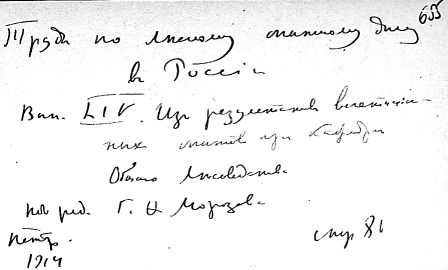 655
Труды по лесному опытному делу
в Россіи
Вып. LIV. Изъ результатовъ вегетаціон-
ных опытов при кафедре
Общаго Лесоводства
под ред. Г. Н Морозова
Петр.
1914
стр 81